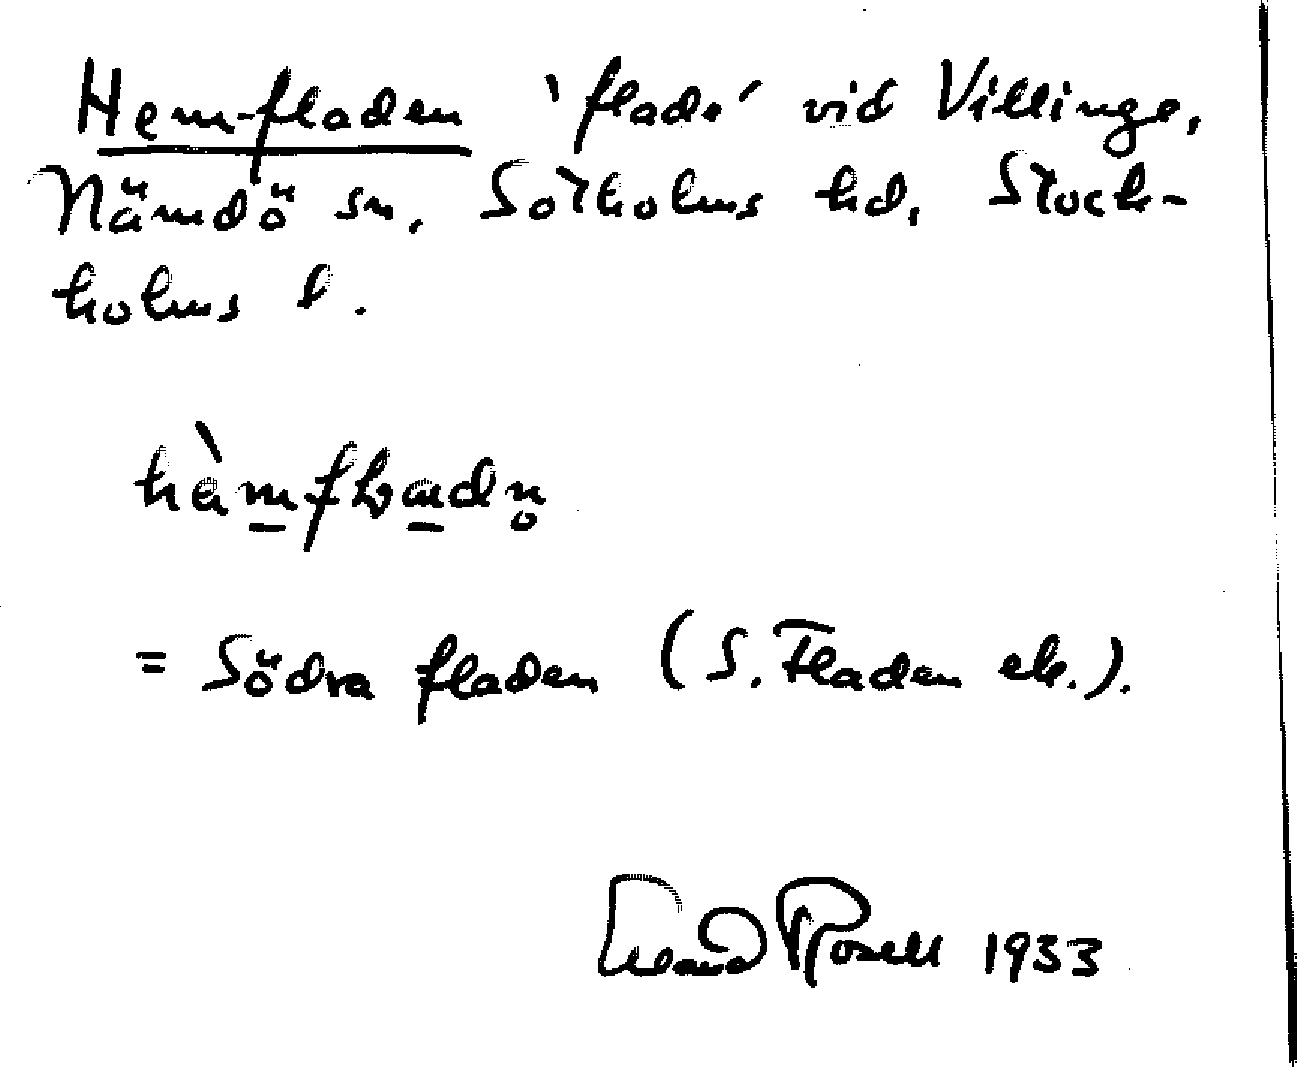 Hem-fladen 'flade' vid Villinge,
Nämdö sn, Sotholms hd, Stock-
holms l.
= Södra fladen (S. Fladen ek.).
Erland Rosell 1933